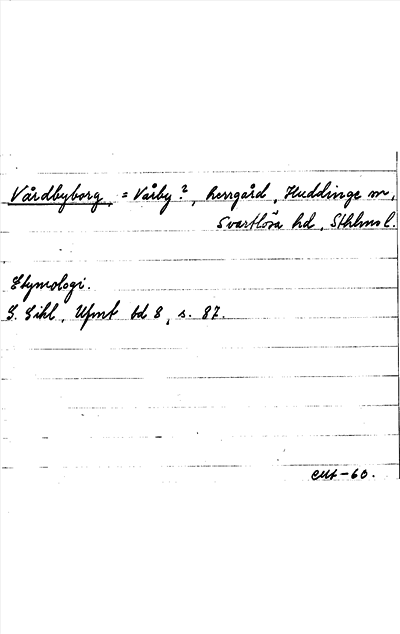 Vårdbyborg, = Vårby?, herrgård, Huddinge sn,
Svartlösa hd, Sthlms l.
Etymologi.
G. Gihl, Upmt bd 8, s. 87.